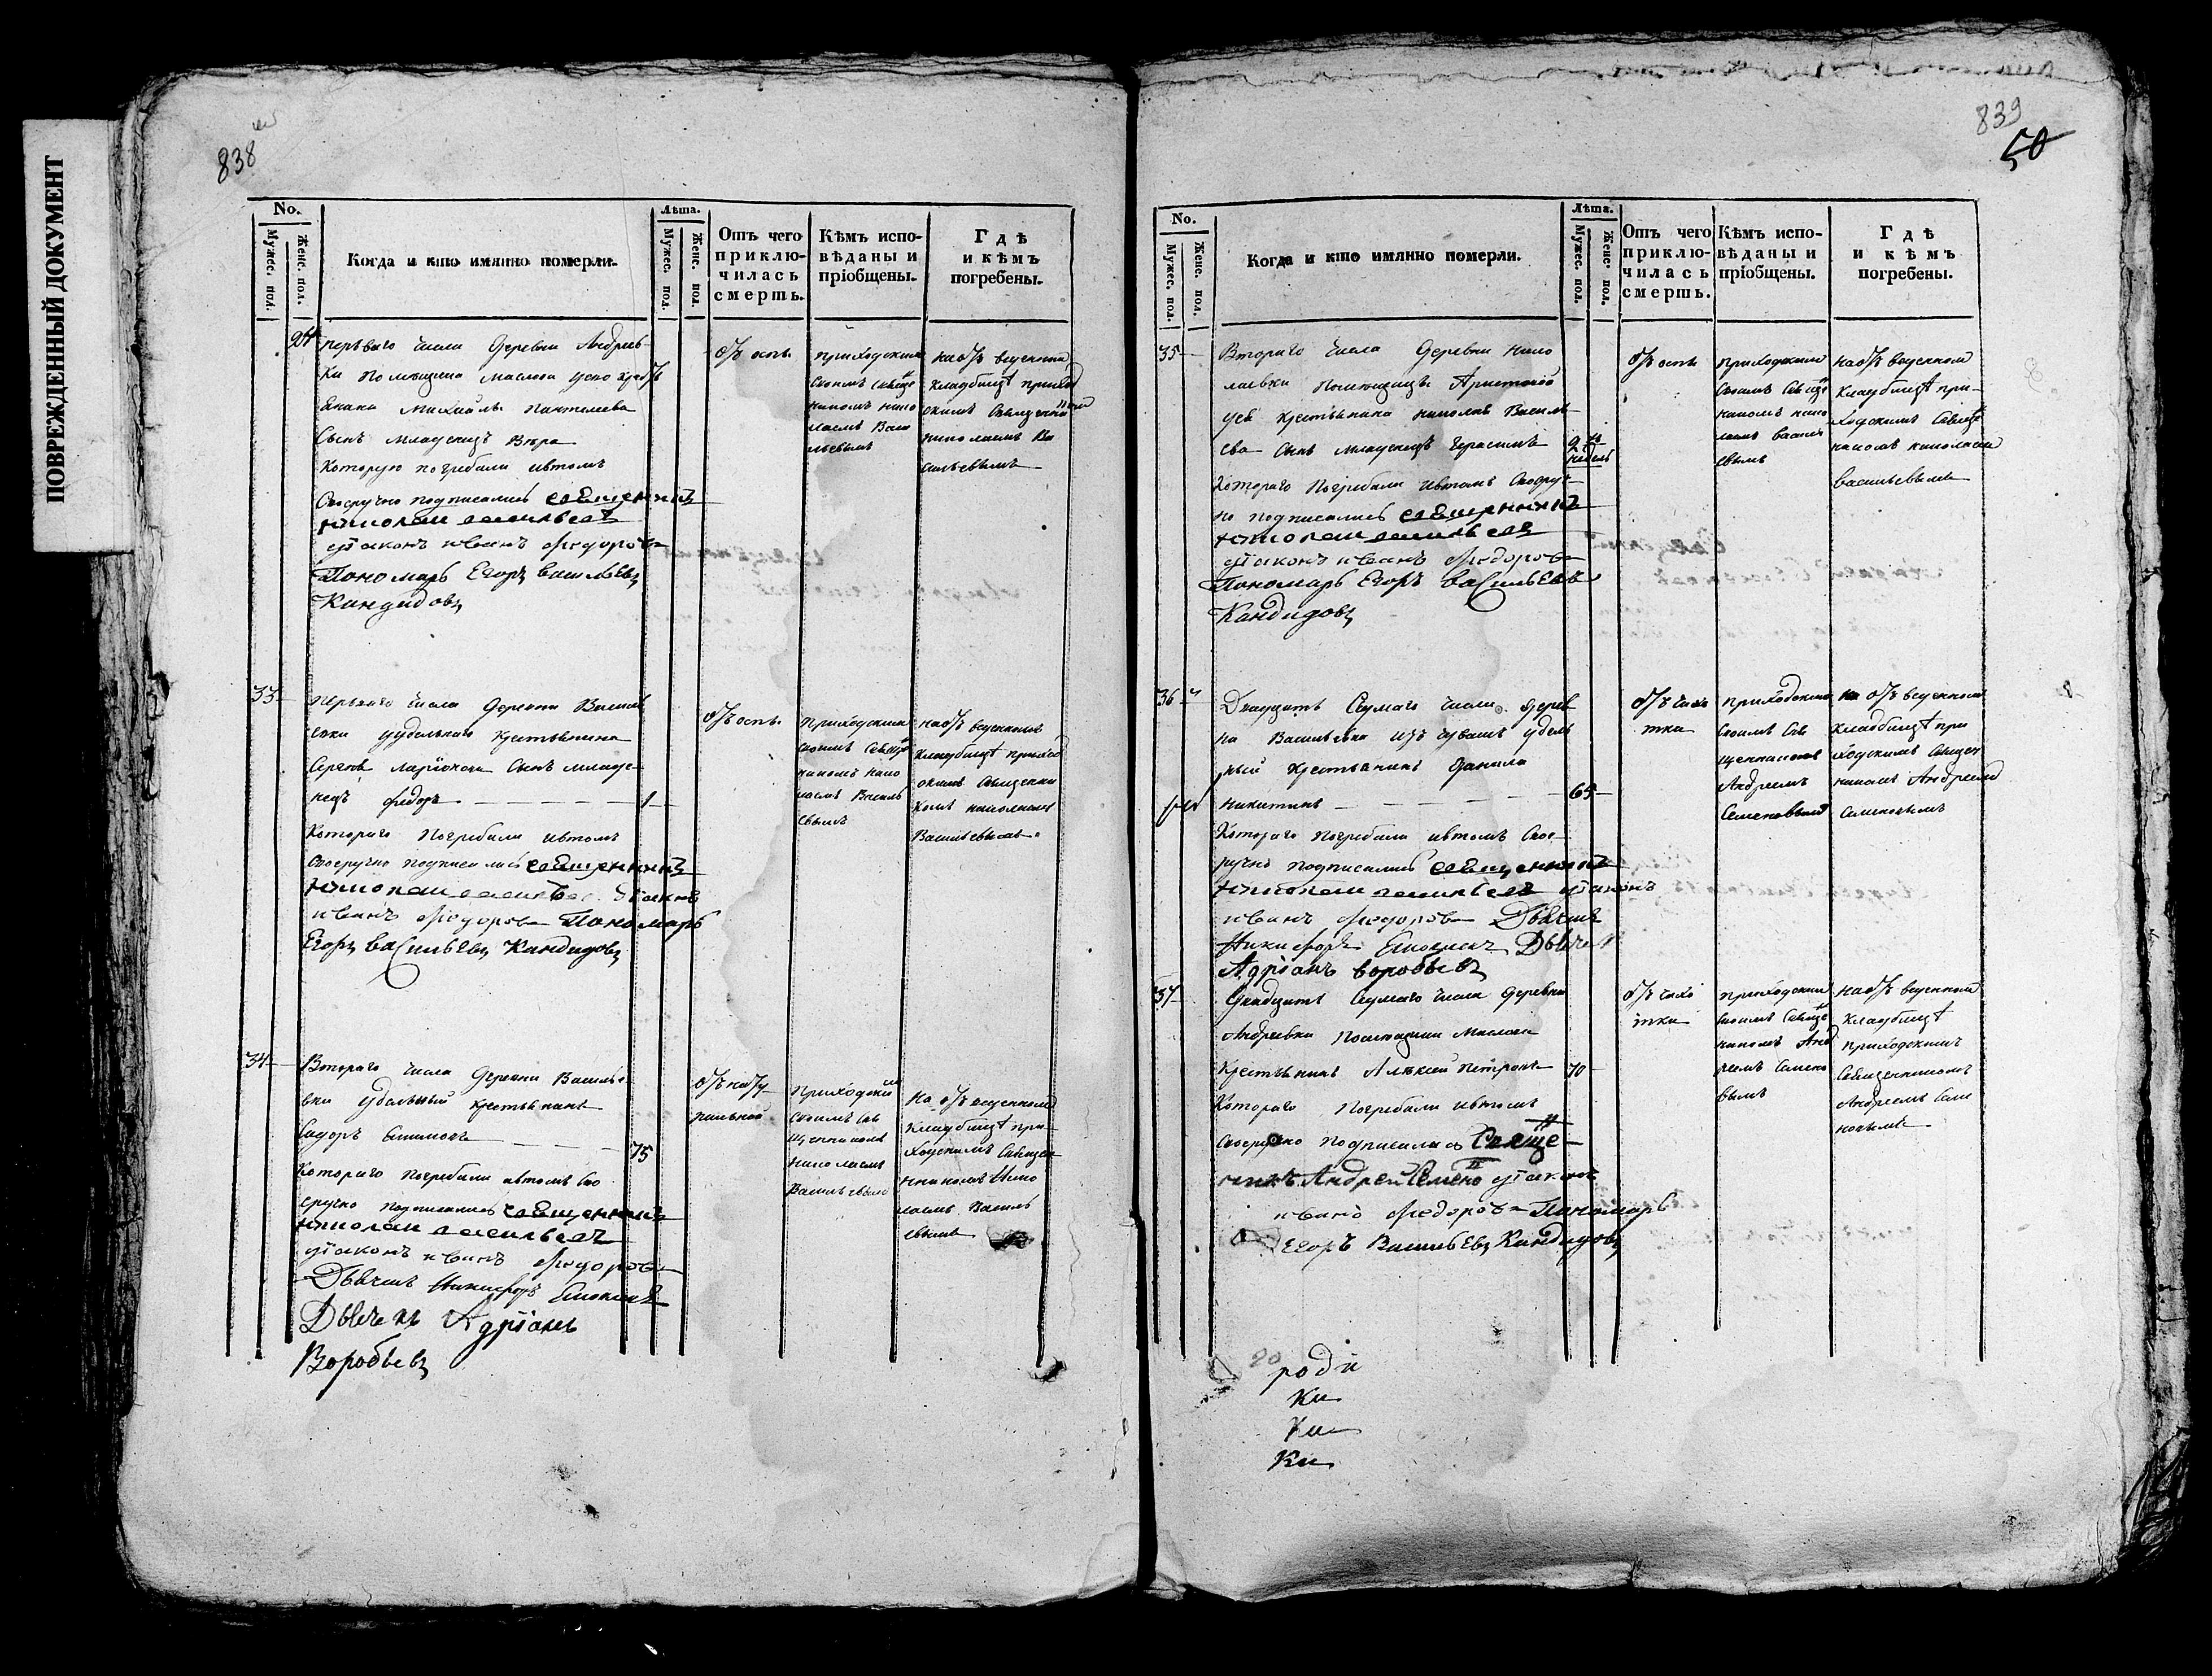 ПОВРЕЖДЕННЫЙ ДОКУМЕНТ
838
No.
Мужес. пол.
Женс. пол.
Когда и кто имянно померли.
Лѣта.
Мужес. пол.
Женс. пол.
Отъ чего
приклю-
чилась
смерть.
Кѣмъ испо-
вѣданы и
пріобщены.
Гдѣ
и кѣмъ
погребены.
перьваго числа деревни Андреев-
ки помещика Маслова
Михайлы Пантелеева
младенецъ Вѣра
Которую погребали и втомъ
Своеручно подписались священникъ
николаи васильевъ
діаконъ иванъ Федоровъ
Пономарь Егоръ васильевъ
Кандидовъ
отъ оспы
приходскимъ
своимъ Священ
никомъ Нико
лаемъ Васи
льевымъ
на отъведенномъ
кладбищѣ приход
скимъ Священно
николаемъ Ва
сильевымъ
33
перьваго числа деревни Василь
евки удѣльнаго крестьянина
Сергея Ларіонова Сынъ младе-
нецъ федоръ 1
Котораго погребали и втомъ
Своеручно подписались священникъ
николаи васильев діаконъ
иванъ Федоровъ Пономарь
Егоръ васильевъ Кандидовъ
отъ оспы
приходскимъ
своимъ Священ
никомъ Нико
лаемъ Василь
евымъ
на отъведенномъ
кладбищѣ приход
скимъ Священни
комъ николаемъ
Васильевымъ
34
Втораго числа деревни Василье
вки удѣльный крестьянинъ
Сидоръ 75
Котораго погребали и втомъ Сво
еручно подписались священникъ
николаи васильевъ
діаконъ иванъ Федоровъ
Дьячекъ Никифоръ
Дьячекъ Адріанъ
Воробьевъ
отъ натту
Приходски
своимъ Свя
щенникомъ
Николаемъ
Васильевымъ
на отъведенномъ
кладбищѣ при-
ходскимъ Священ
никомъ Нико
лаемъ Василь
евымъ
839
50
No.
Мужес. пол.
Женс. пол.
Когда и кто имянно померли.
Лѣта.
Мужес. пол.
Женс. пол.
Отъ чего
приклю-
чилась
смерть.
Кѣмъ испо-
вѣданы и
пріобщены.
Гдѣ
и кѣмъ
погребены.
35
Втораго числа деревни нико
лаевки
крестьянина николая Василь
ева Сынъ младенецъ Герасимъ 9 недель
Котораго погребали и втомъ Своеруч-
но подписались священникъ
николаи васильевъ
діаконъ иванъ Федоровъ
Пономарь Егоръ васильевъ
Кандидовъ
отъ оспы
приходскимъ
своимъ Священ
никомъ нико
лаемъ василь
евымъ
на отъведенномъ
кладбищѣ при-
ходскимъ Священ
никомъ николаемъ
васильевымъ
36
Двадцать Седмаго числа дерев
ни Васильевки изъ чувашъ удѣль
ный крестьянинъ Данила
никитинъ 65
Котораго погребали и втомъ Свое-
ручно подписались священникъ
николаи васильевъ діаконъ
иванъ Федоровъ Дьячекъ
Никифоръ Дьячекъ
Адріанъ воробьевъ
отъ чахо
тки
приходскимъ
своимъ Свя
щенникомъ
Андреемъ
Семеновымъ
на отъведенномъ
кладбищѣ при
ходскимъ Священ
никомъ Андреемъ
Семеновымъ
37
Двадцать Седмаго числа деревни
Андреевки помещика Маслова
крестьянинъ Алексей Петровъ 70
Котораго погребали и втомъ
Своеручно подписались Свяще
никъ Андрей Семено діаконъ
иванъ Федоровъ Пономарь
Егоръ Васильевъ Кандидовъ
отъ чахо
тки
приходским
своимъ Священ
никомъ Анд
реемъ Семено
вымъ
на отъведенном
кладбищѣ
приходскимъ
Священникомъ
Андреемъ Семе
новымъ
20
роди
Ки
Ки
Ки